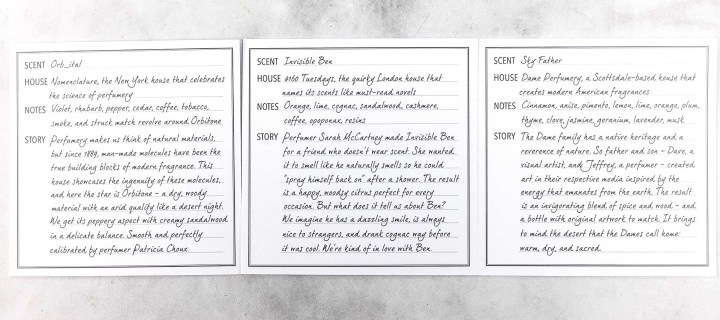 SCENT Orb_ital
HOUSE Nomenclature, the New York house that celebrates
the science of perfumery
NOTES Violet, rhubarb, pepper, cedar, coffee, tobacco,
smoke, and struck match revolve around Orbitone
STORY Perfumery makes us think of natural materials,
but since 1889, man-made molecules have been the
true building blocks of modern fragrance. This
house showcases the ingenuity of these molecules,
and here the star is Orbitone – a dry, woody
material with an arid quality like a desert night.
We get its peppery aspect with creamy sandalwood
in a delicate balance. Smooth and perfectly
calibrated by perfumer Patricia Choux.
SCENT Invisible Ben
HOUSE 4160 Tuesdays, the quirky London house that
names its scents like must-read novels
NOTES Orange, lime, cognac, sandalwood, cashmere,
coffee, opoponax, resins
STORY Perfumer Sarah McCartney made Invisible Ben
for a friend who doesn't wear scent. She wanted
it to smell like he naturally smells so he could
"spray himself back on" after a shower. The result
is a happy, woodsy citrus perfect for every
occasion. But what does it tell us about Ben?
We imagine he has a dazzling smile, is always
nice to strangers, and drank cognac way before
it was cool. We're kind of in love with Ben.
SCENT Sky Father
HOUSE Dame Perfumery, a Scottsdale-based house that
creates modern American fragrances
NOTES Cinnamon, anise, pimento, lemon, lime, orange, plum,
thyme, clove, jasmine, geranium, lavender, musk
STORY The Dame family has a native heritage and a
reverence of nature. So father and son – Dave, a
visual artist, and Jeffrey, a perfumer – created
art in their respective media inspired by the
energy that emanates from the earth. The result
is an invigorating blend of spice and wood – and
a bottle with original artwork to match. It brings
to mind the desert that the Dames call home:
warm, dry, and sacred.